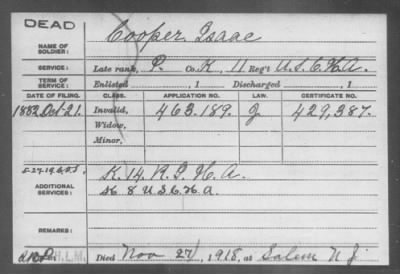 DEAD
NAME OF SOLDIER: Cooper Isaac
SERVICE: Late rank, P. Co. K, 11 Reg't U.S.C.H.A.
TERM OF SERVICE: Enlisted , 1 Discharged , 1
DATE OF FILING. CLASS. APPLICATION NO. LAW. CERTIFICATE NO.
1882 Oct 21. Invalid, 463.189. 429,387.
Widow,
Minor,
ADDITIONAL SERVICES: K. 14. R.I. H.A.
8 U.S.C.H.A.
REMARKS:
H.L.M. Died Nov 27, 1918, at Salem N.J.